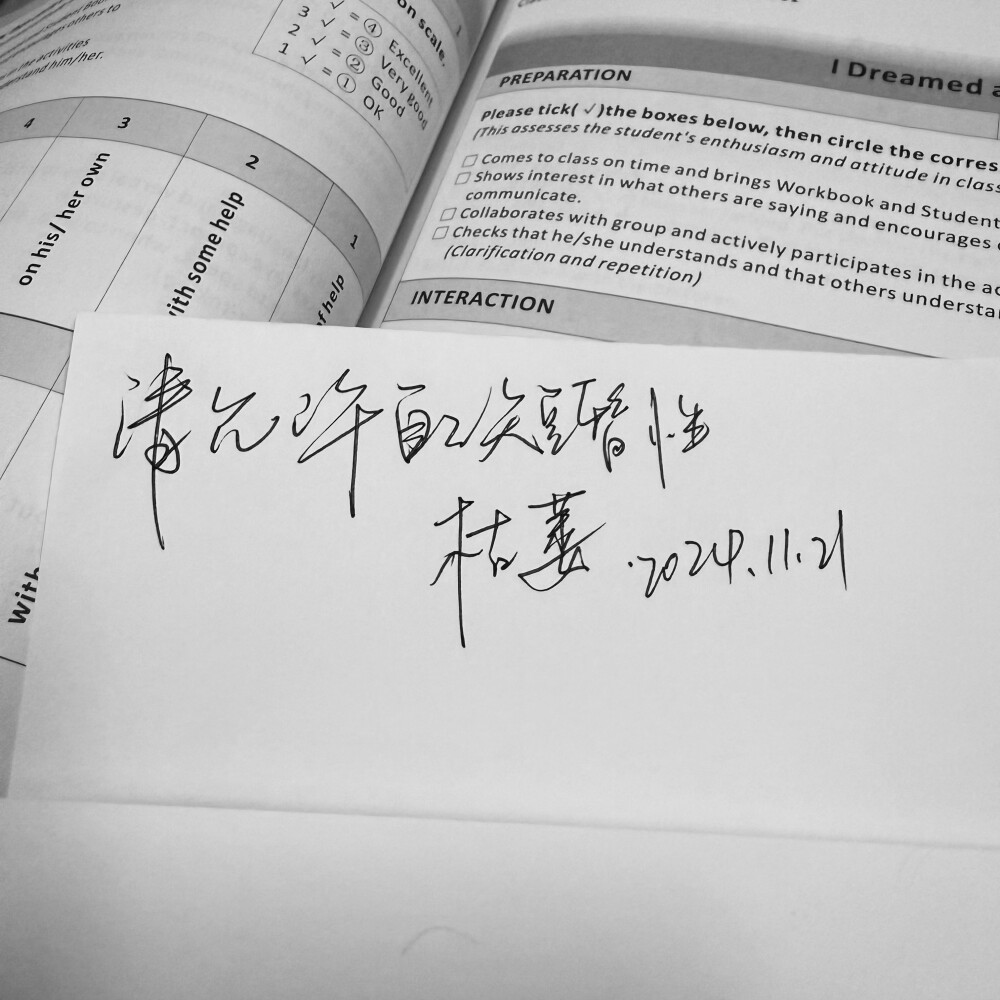 on scale.
4 Excellent
3 ✓ = ③ Very good
2 ✓ = ② Good
1 ✓ = ① OK
the activities
him/her.
4 3 2 1
on his/ her own
with some help
of help
With
I Dreamed a
PREPARATION
Please tick( ✓ )the boxes below, then circle the corres
(This assesses the student's enthusiasm and attitude in class
☐ Comes to class on time and brings Workbook and Student
☐ Shows interest in what others are saying and encourages
communicate.
☐ Collaborates with group and actively participates in the ac
☐ Checks that he/she understands and that others understa
(Clarification and repetition)
INTERACTION
请允许自己短暂性
枯萎.2024.11.21